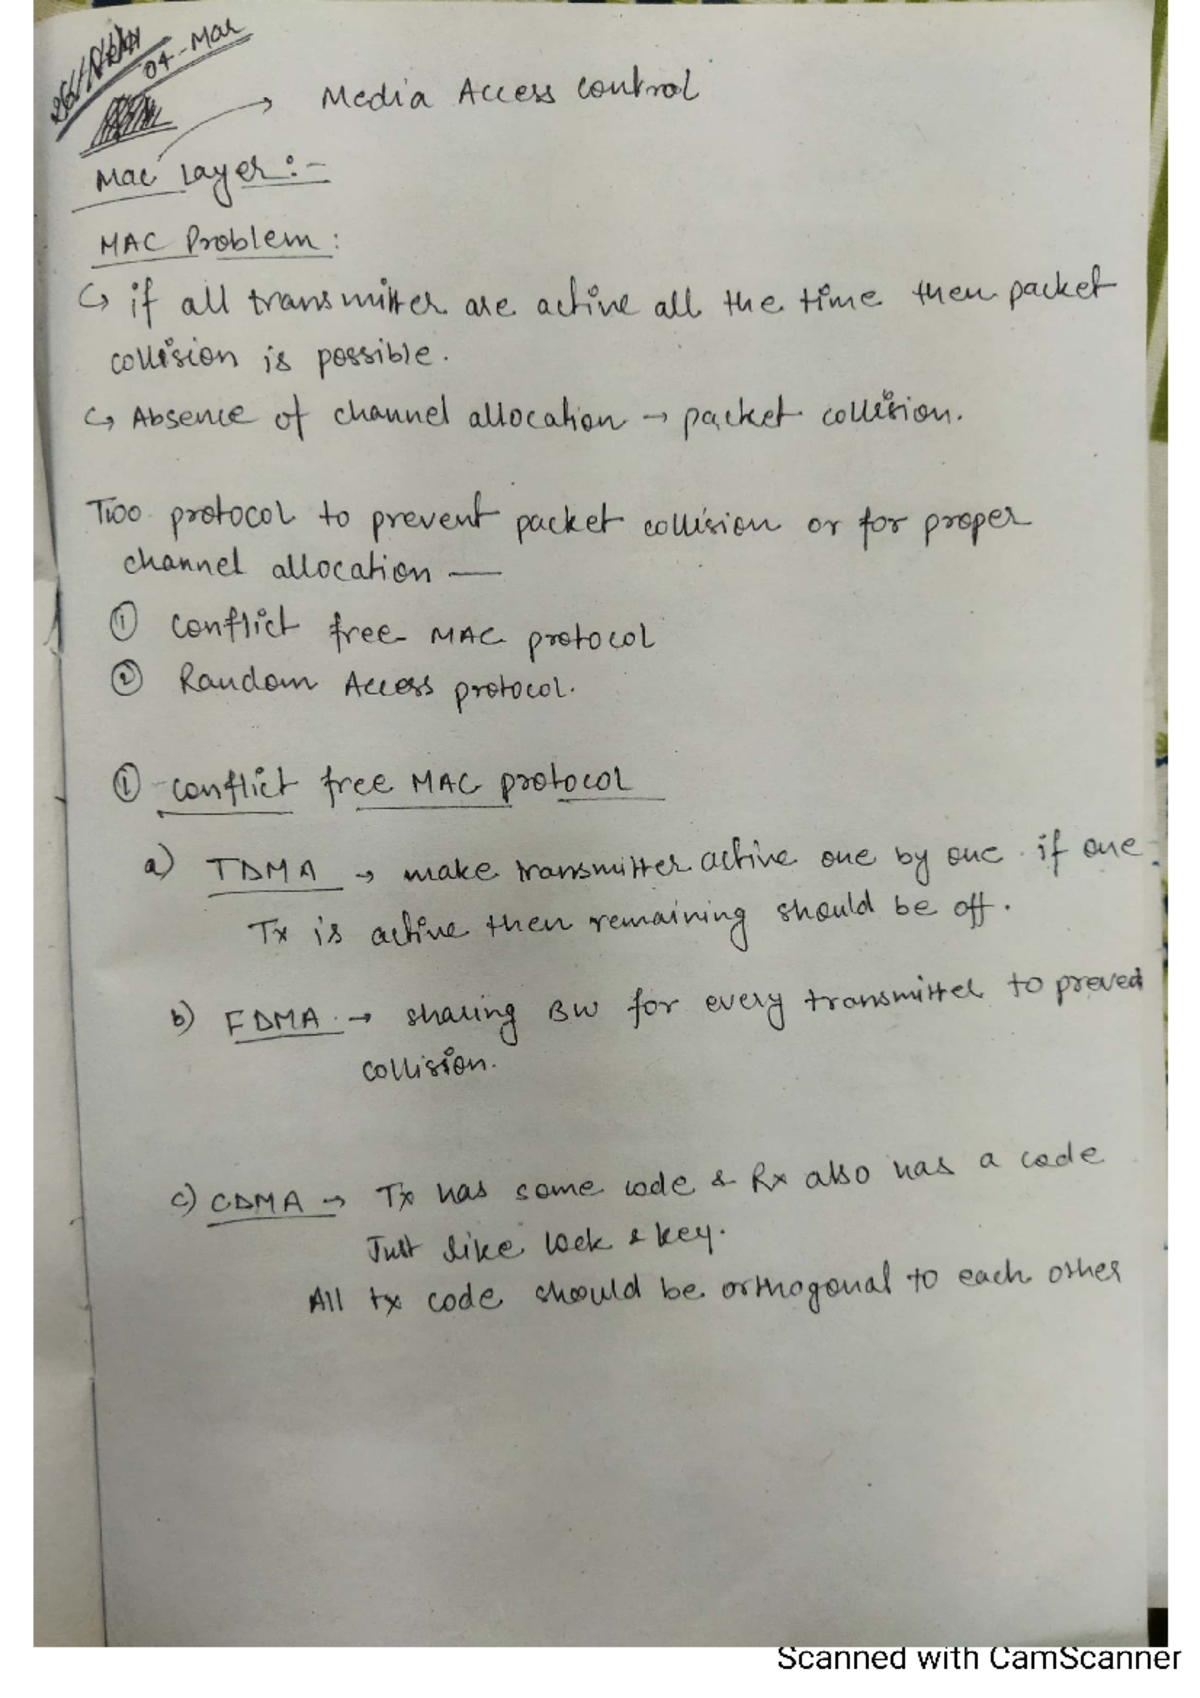 04-Mar
Media Access control
Mac Layer:-
MAC Problem:
↳ if all transmitter are active all the time then packet
collision is possible.
↳ Absence of channel allocation → packet collision.
Two protocol to prevent packet collision or for proper
channel allocation —
① conflict free MAC protocol
② Random Access protocol.
① conflict free MAC protocol
a) TDMA → make transmitter active one by one. if one
Tx is active then remaining should be off.
b) FDMA → sharing BW for every transmitter to
collision.
c) CDMA → Tx has some code & Rx also has a code
Just like lock & key.
All tx code should be orthogonal to each other
Scanned with CamScanner